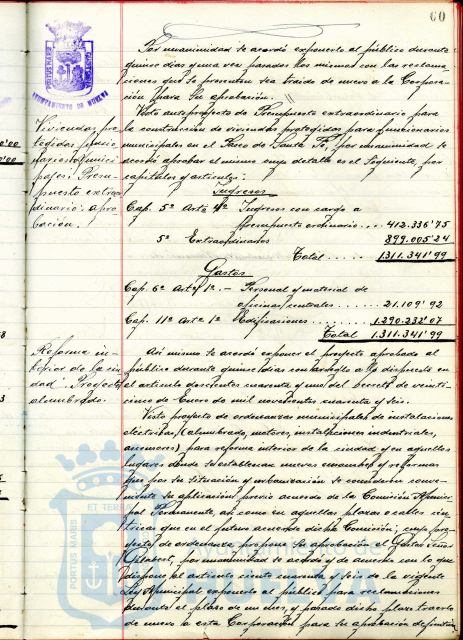 60
PORTUS MARIS
AYUNTAMIENTO DE HUELVA
Por unanimidad se acordó exponerlo al público durante
quince días y una vez pasados los mismos con las reclama-
ciones que se presenten sea traido de nuevo a la Corpora-
ción para su aprobación.
Viviendas pro-
tegidas funcio-
narios munici-
pales. Presu-
puesto extraor-
dinario. apro-
bación.
Visto anteproyecto de Presupuesto extraordinario para
la construcción de viviendas protegidas para funcionarios
municipales en el Paseo de Santa Fé, por unanimidad se
acordó aprobar el mismo cuyo detalle es el siguiente, por
capítulos y artículos:
Ingresos
Cap. 5º Artº 4º Ingresos con cargo a
Presupuesto ordinario... 412.336'75
5º Extraordinarios 899.005'24
Total ..... 1.311.341'99
Gastos
Cap. 6º Artº 1º.- Personal y material de
oficinas centrales ..... 21.109'92
Cap. 11º Artº 1º Edificaciones ..... 1.290.232'07
Total 1.311.341'99
Reforma in-
terior de la ciu-
dad. Proyecto
alumbrado.
Asi mismo se acordó exponer el proyecto aprobado al
público durante quince días con arreglo a lo dispuesto en
el artículo doscientos cuarenta y uno del decreto de veinti-
cinco de Enero de mil novecientos cuarenta y seis.
Visto proyecto de ordenanzas municipales de instalaciones
eléctricas (alumbrado, motores, instalaciones industriales,
ascensores) para reforma interior de la ciudad y en aquellos
lugares donde se establezcan nuevos ensanches y reformas
que por su situación y urbanización se consideren conve-
niente su aplicación previo acuerdo de la Comisión Munici-
pal Permanente, así como en aquellas plazas o calles cén-
tricas que en el futuro acuerde dicha Comisión; cuyo pro-
yecto de ordenanzas propone su aprobación el Gestor Señor
por unanimidad se acordó y de acuerdo con lo que
dispone el artículo ciento cuarenta y seis de la vigente
Ley Municipal exponerlo al público para reclamaciones
durante el plazo de un mes, y pasado dicho plazo traerlo
de nuevo a esta Corporación para su aprobación definitiva
ET TERRAE
PORTUS MARIS
Ayuntamiento de
HUELVA